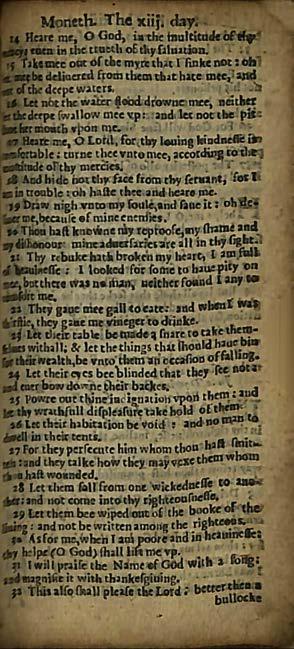 Moneth. The xiij. day.
14 Heare me, O God, in the multitude of thy
mercy: euen in the trueth of thy saluation.
15 Take mee out of the myre that I sinke not: oh
let mee be deliuered from them that hate mee, and
out of the deepe waters.
16 Let not the water flood drowne mee, neither
let the deepe swallow mee vp: and let not the pit
her mouth vpon me.
17 Heare me, O Lord, for thy louing kindnesse is
comfortable: turne thee vnto mee, according to the
multitude of thy mercies.
18 And hide not thy face from thy seruant, for I
am in trouble: oh haste thee and heare me.
19 Draw nigh vnto my soule, and saue it: oh de-
liuer me, because of mine enemies.
20 Thou hast knowne my reproofe, my shame and
my dishonour: mine aduersaries are all in thy sight.
21 Thy rebuke hath broken my heart, I am full
of heauinesse: I looked for some to haue pity on
mee, but there was no man, neither found I any to
comfort me.
22 They gaue mee gall to eate: and when I was
thirstie, they gaue me vineger to drinke.
23 Let their table be made a snare to take them-
selues withall; & let the things that should haue bin
for their wealth, be vnto them an occasion of falling.
24 Let their eyes bee blinded that they see not:
and euer bow downe their backes.
25 Powre out thine indignation vpon them: and
let thy wrathfull displeasure take hold of them.
26 Let their habitation be void: and no man to
dwell in their tents.
27 For they persecute him whom thou hast smit-
ten: and they talke how they may vexe them whom
thou hast wounded.
28 Let them fall from one wickednesse to ano-
ther: and not come into thy righteousnesse.
29 Let them bee wiped out of the booke of the
liuing: and not be written among the righteous.
30 As for me, when I am poore and in heauinesse:
thy helpe (O God) shall lift me vp.
31 I will praise the Name of God with a song:
and magnifie it with thankesgiuing.
32 This also shall please the Lord: better then a
bullocke